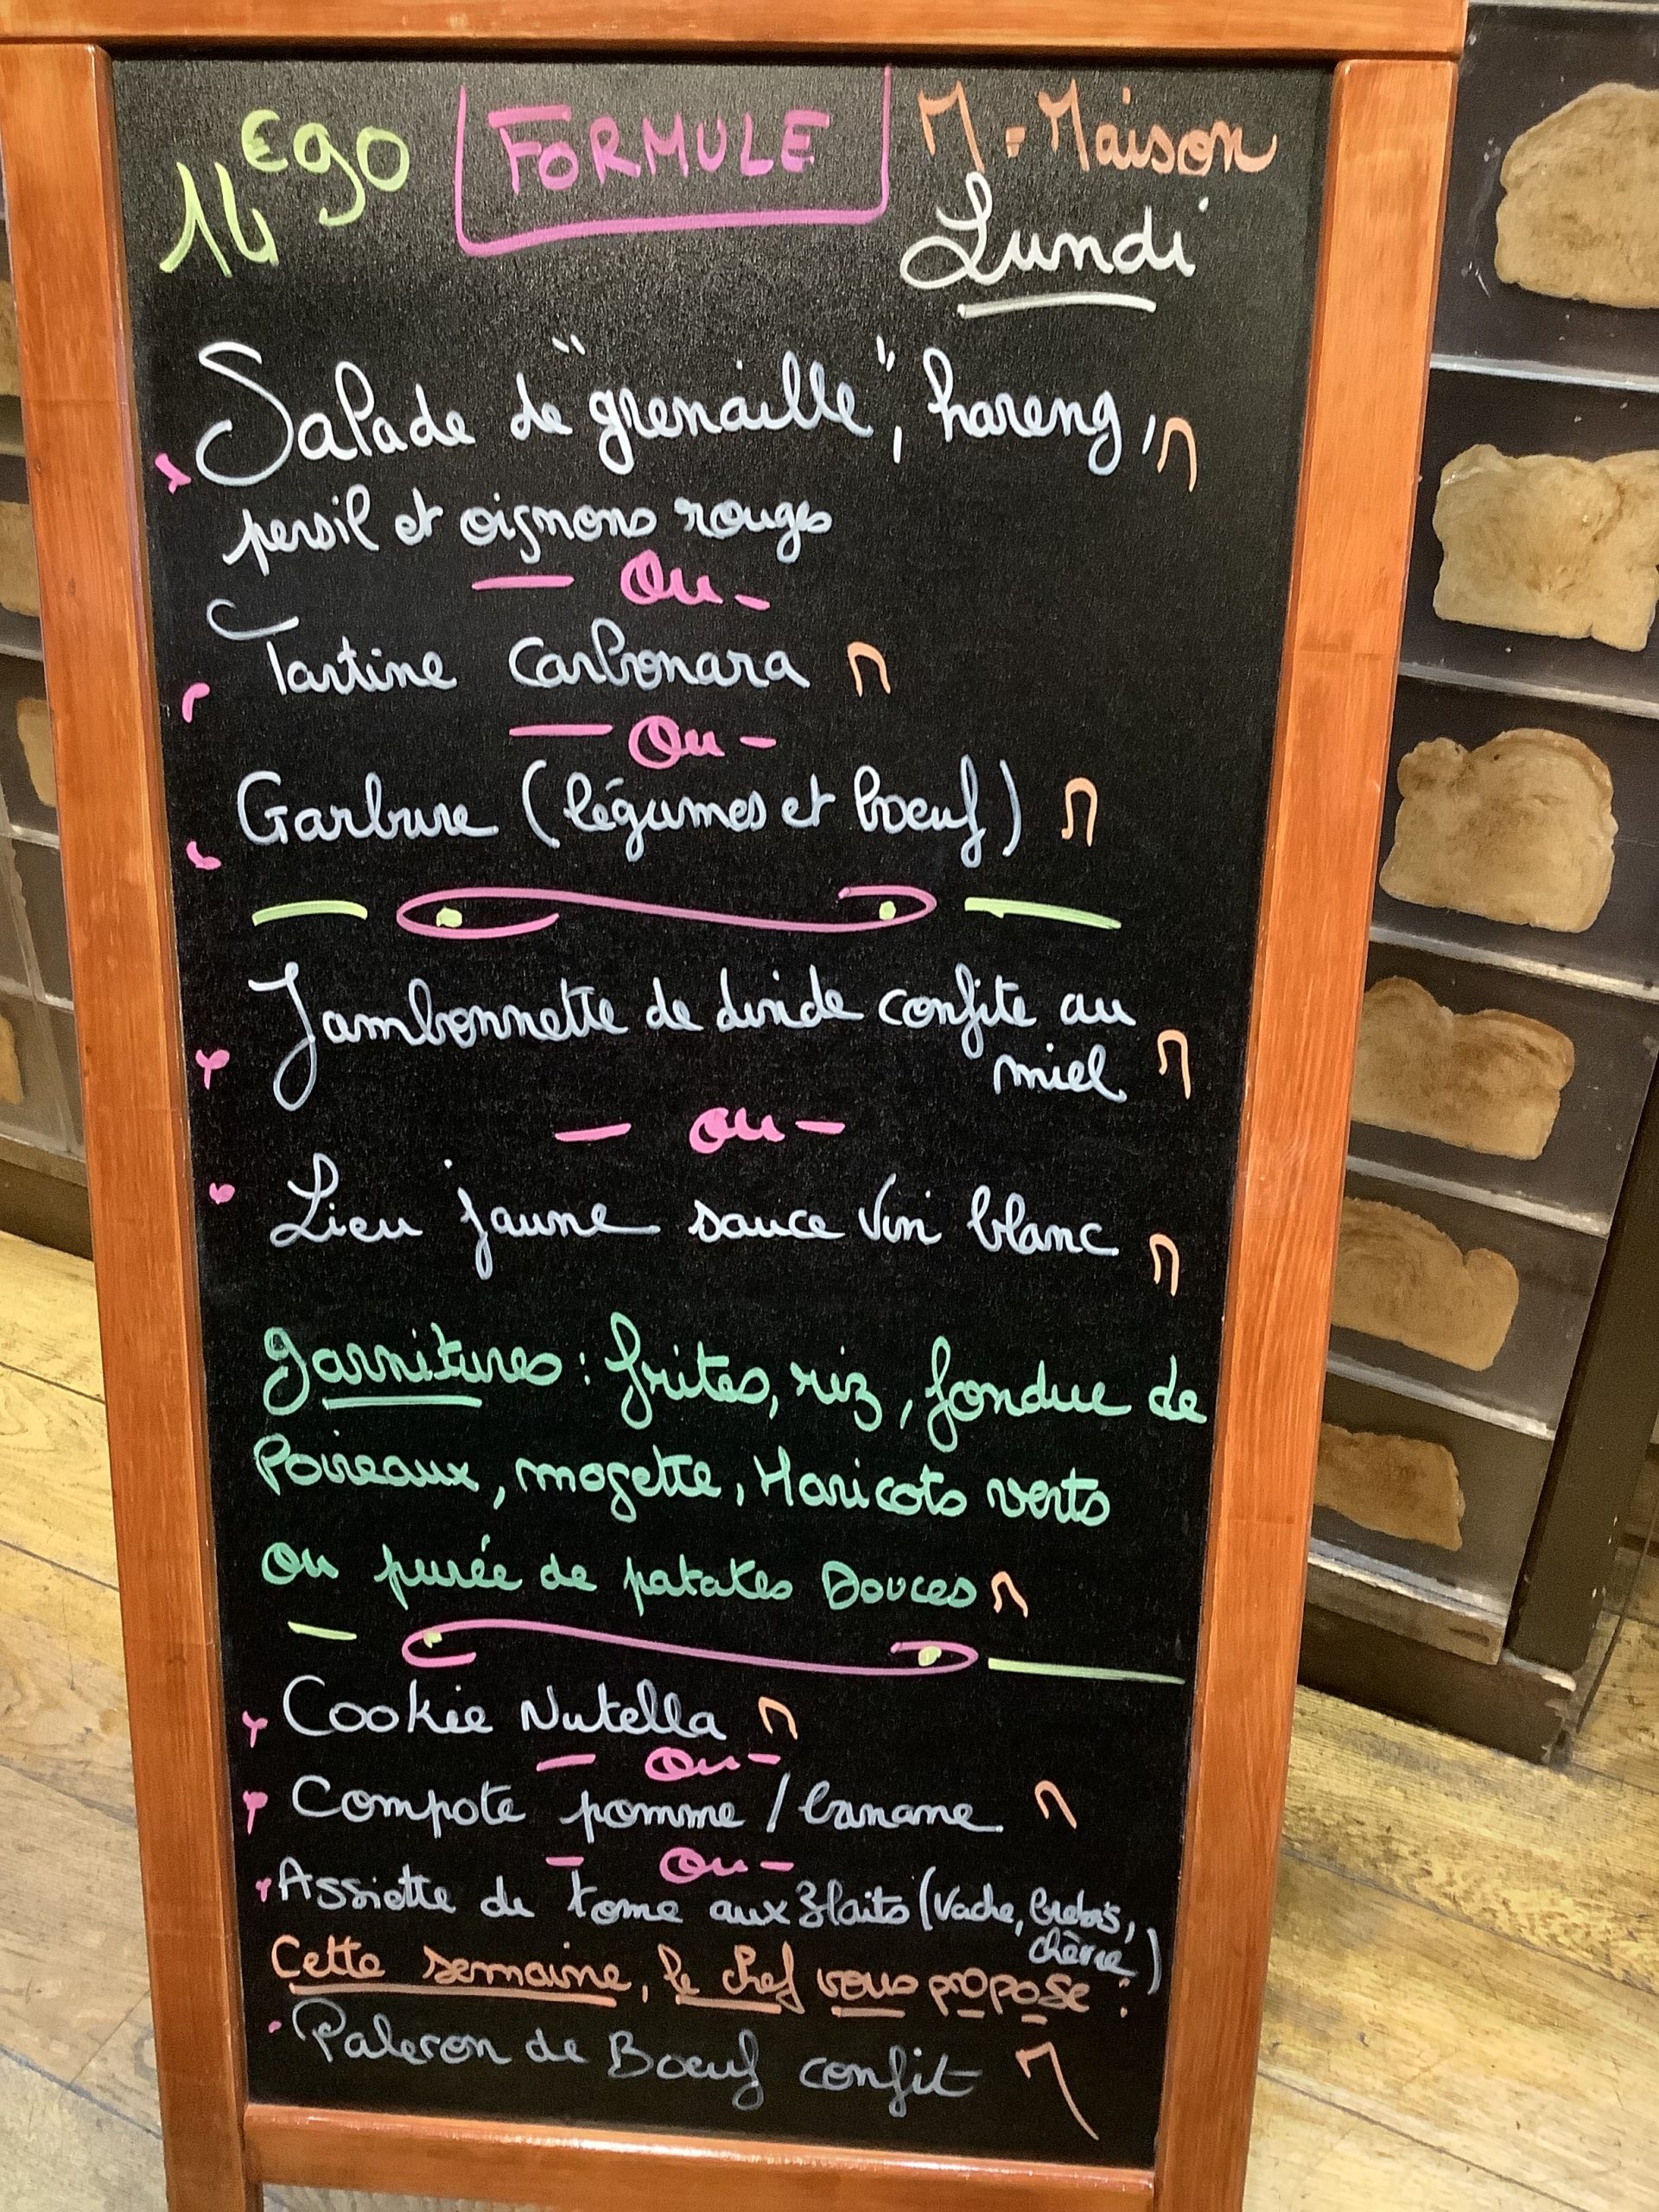 14€90 FORMULE M = Maison
Lundi
Salade de "grenaille", hareng, M
persil et oignons rouges
- Ou -
Tartine Carbonara M
- Ou -
Garbure (légumes et boeuf) M
Jambonnette de dinde confite au
miel M
- ou -
Lieu jaune sauce Vin blanc M
garnitures : frites, riz, fondue de
Poireaux, mogette, Haricots verts
ou purée de patates Douces M
Cookie Nutella M
- Ou -
Compote pomme / banane M
- Ou -
Assiette de tome aux 3 laits (Vache, brebis,
chèvre)
Cette semaine, le chef vous propose :
Paleron de Boeuf confit M